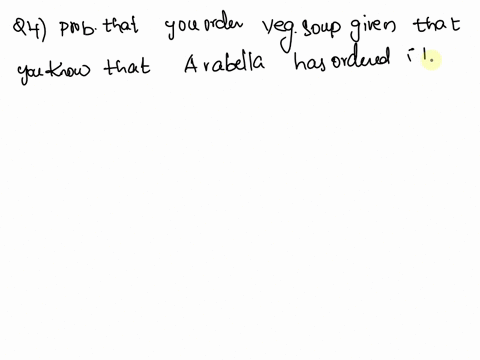 Q4) prob. that you order veg. soup given that
you know that Arabella has ordered it.